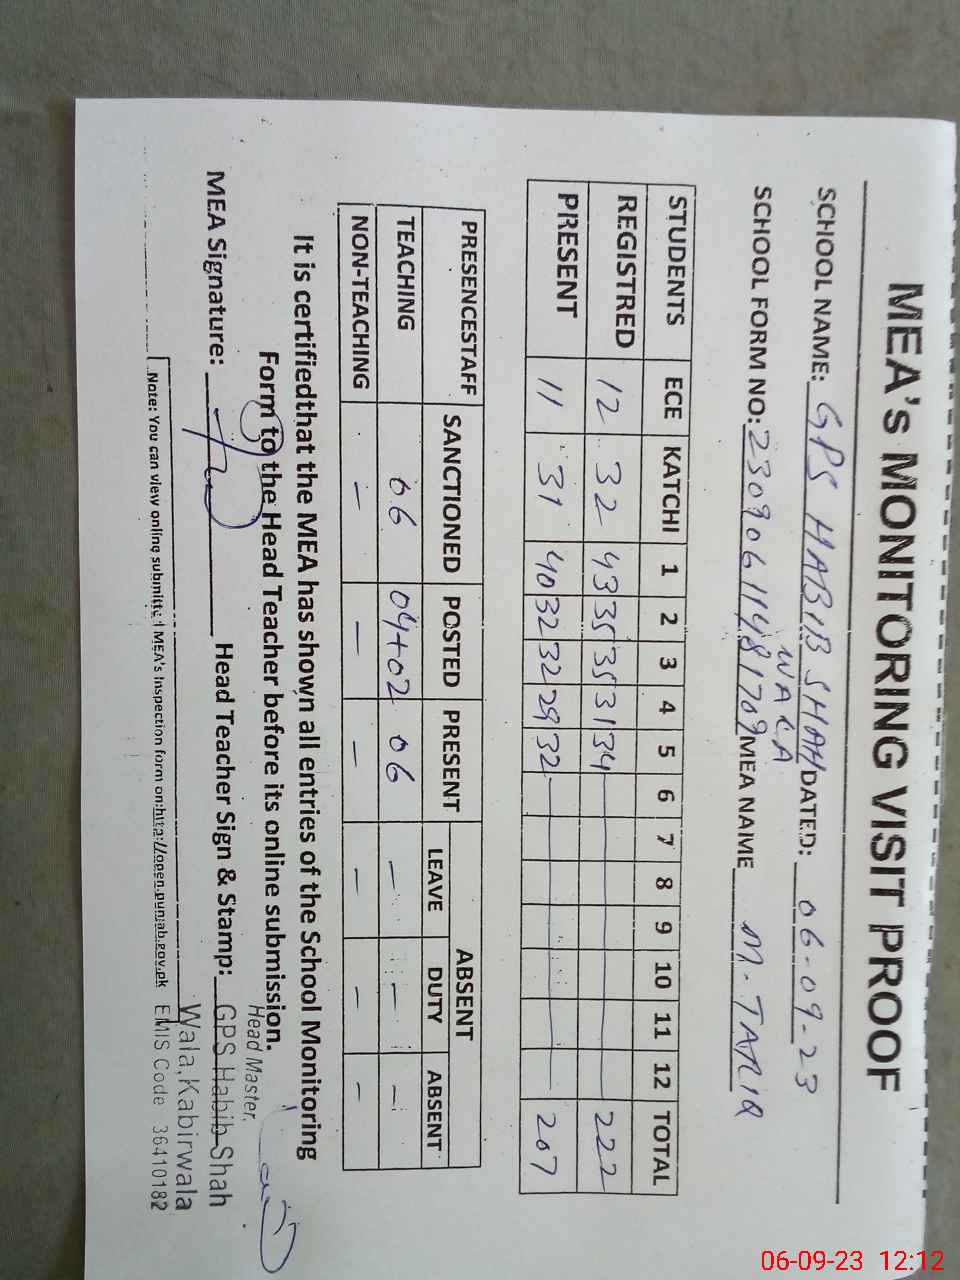 MEA's MONITORING VISIT PROOF
SCHOOL NAME: GPS HABIB SHAH DATED: 06-09-23
WALA
SCHOOL FORM NO: 23090611481709 MEA NAME M. TARIQ
STUDENTS ECE KATCHI 1 2 3 4 5 6 7 8 9 10 11 12 TOTAL
REGISTRED 12 32 43 35 35 31 34 222
PRESENT 11 31 40 32 32 29 32 207
PRESENCESTAFF SANCTIONED POSTED PRESENT ABSENT
LEAVE DUTY ABSENT
TEACHING 06 04+02 06 - - -
NON-TEACHING - - - - - -
It is certifiedthat the MEA has shown all entries of the School Monitoring
Form to the Head Teacher before its online submission.
MEA Signature: Head Teacher Sign & Stamp:
Head Master.
GPS Habib Shah
Wala, Kabirwala
EMIS Code 36410182
Note: You can view online submitted MEA's Inspection form on:http://open.punjab.gov.pk
06-09-23 12:12